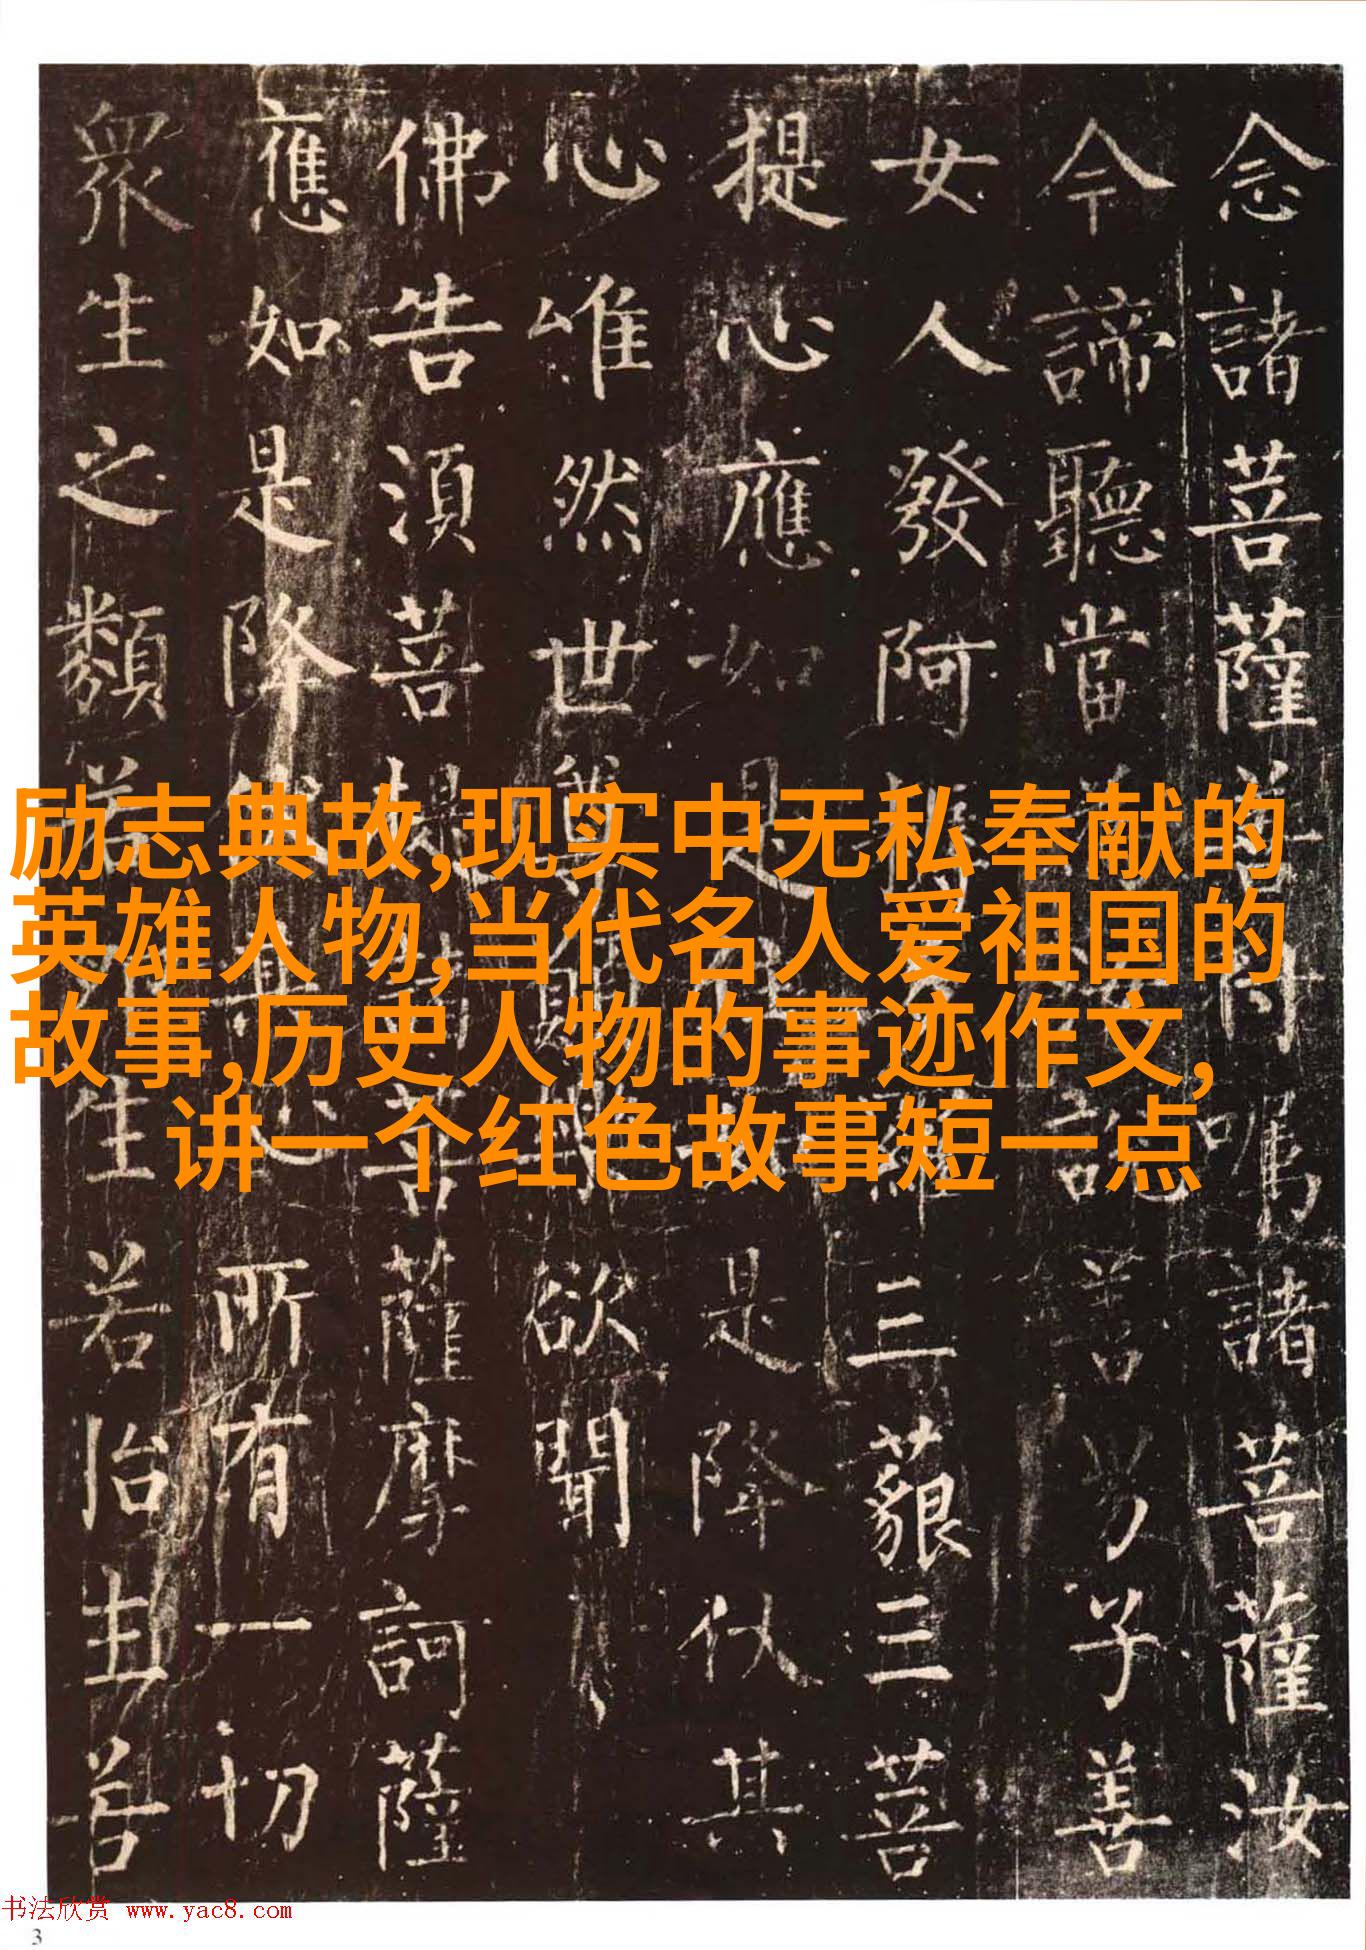 念諸菩薩善付囑諸菩薩汝
今諦聽當說善男子善
女人發阿耨羅三藐三菩
提心應如是住如是降伏其
心唯然世尊願欲聞
佛告須菩提菩薩摩訶薩
應如是降伏其心所有一切
眾生之類若生若胎生若
励志典故,现实中无私奉献的
英雄人物,当代名人爱祖国的
故事,历史人物的事迹作文,
讲一个红色故事短一点
书法欣赏 www.yac8.com
3